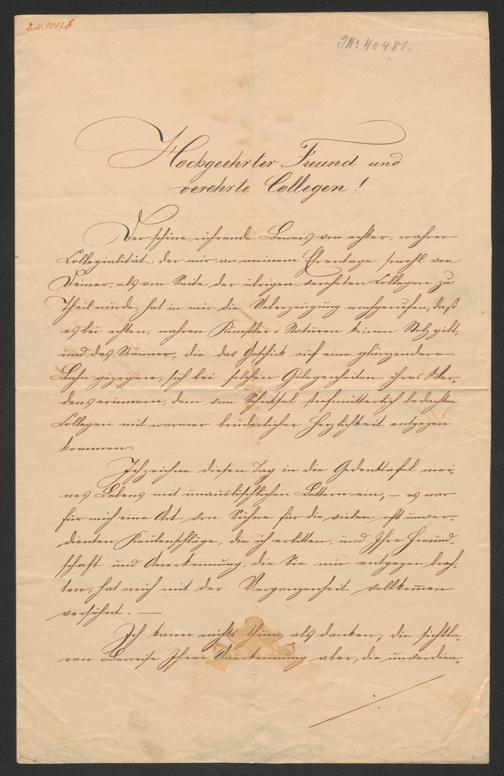 I.N. 40481.
Hochgeehrter Freund und
verehrte Collegen!
Der schöne rührende Beweis von echter, wahrer
Collegialität, der mir an meinem Ehrentage sowohl von
Deiner, als von Seite der übrigen verehrten Collegen zu
Theil wurde, hat in mir die Ueberzeugung wachgerufen, daß
es bei echten, wahren Künstler-Naturen keinen Stolz gibt,
und daß Männer, die das Geschick auf eine glänzendere
Bahn gezogen, sich bei solchen Gelegenheiten ihres Wer-
dens erinnern, dem vom Schicksal stiefmütterlich bedachten
Collegen mit warmer brüderlicher Herzlichkeit entgegen
kommen.
Ich zeichne diesen Tag in die Gedenktafel mei-
nes Lebens mit unauslöschlichen Lettern ein, – es war
für mich eine Art von Sühne für die vielen oft unver-
dienten Keulenschläge, die ich erlitten, und Ihre Freund-
schaft und Anerkennung, die Sie mir entgegen brach-
ten, hat mich mit der Vergangenheit vollkommen
versöhnt. –
Ich kann nichts thun, als danken, die sichtba-
ren Beweise Ihrer Anerkennung aber, die unverdien-